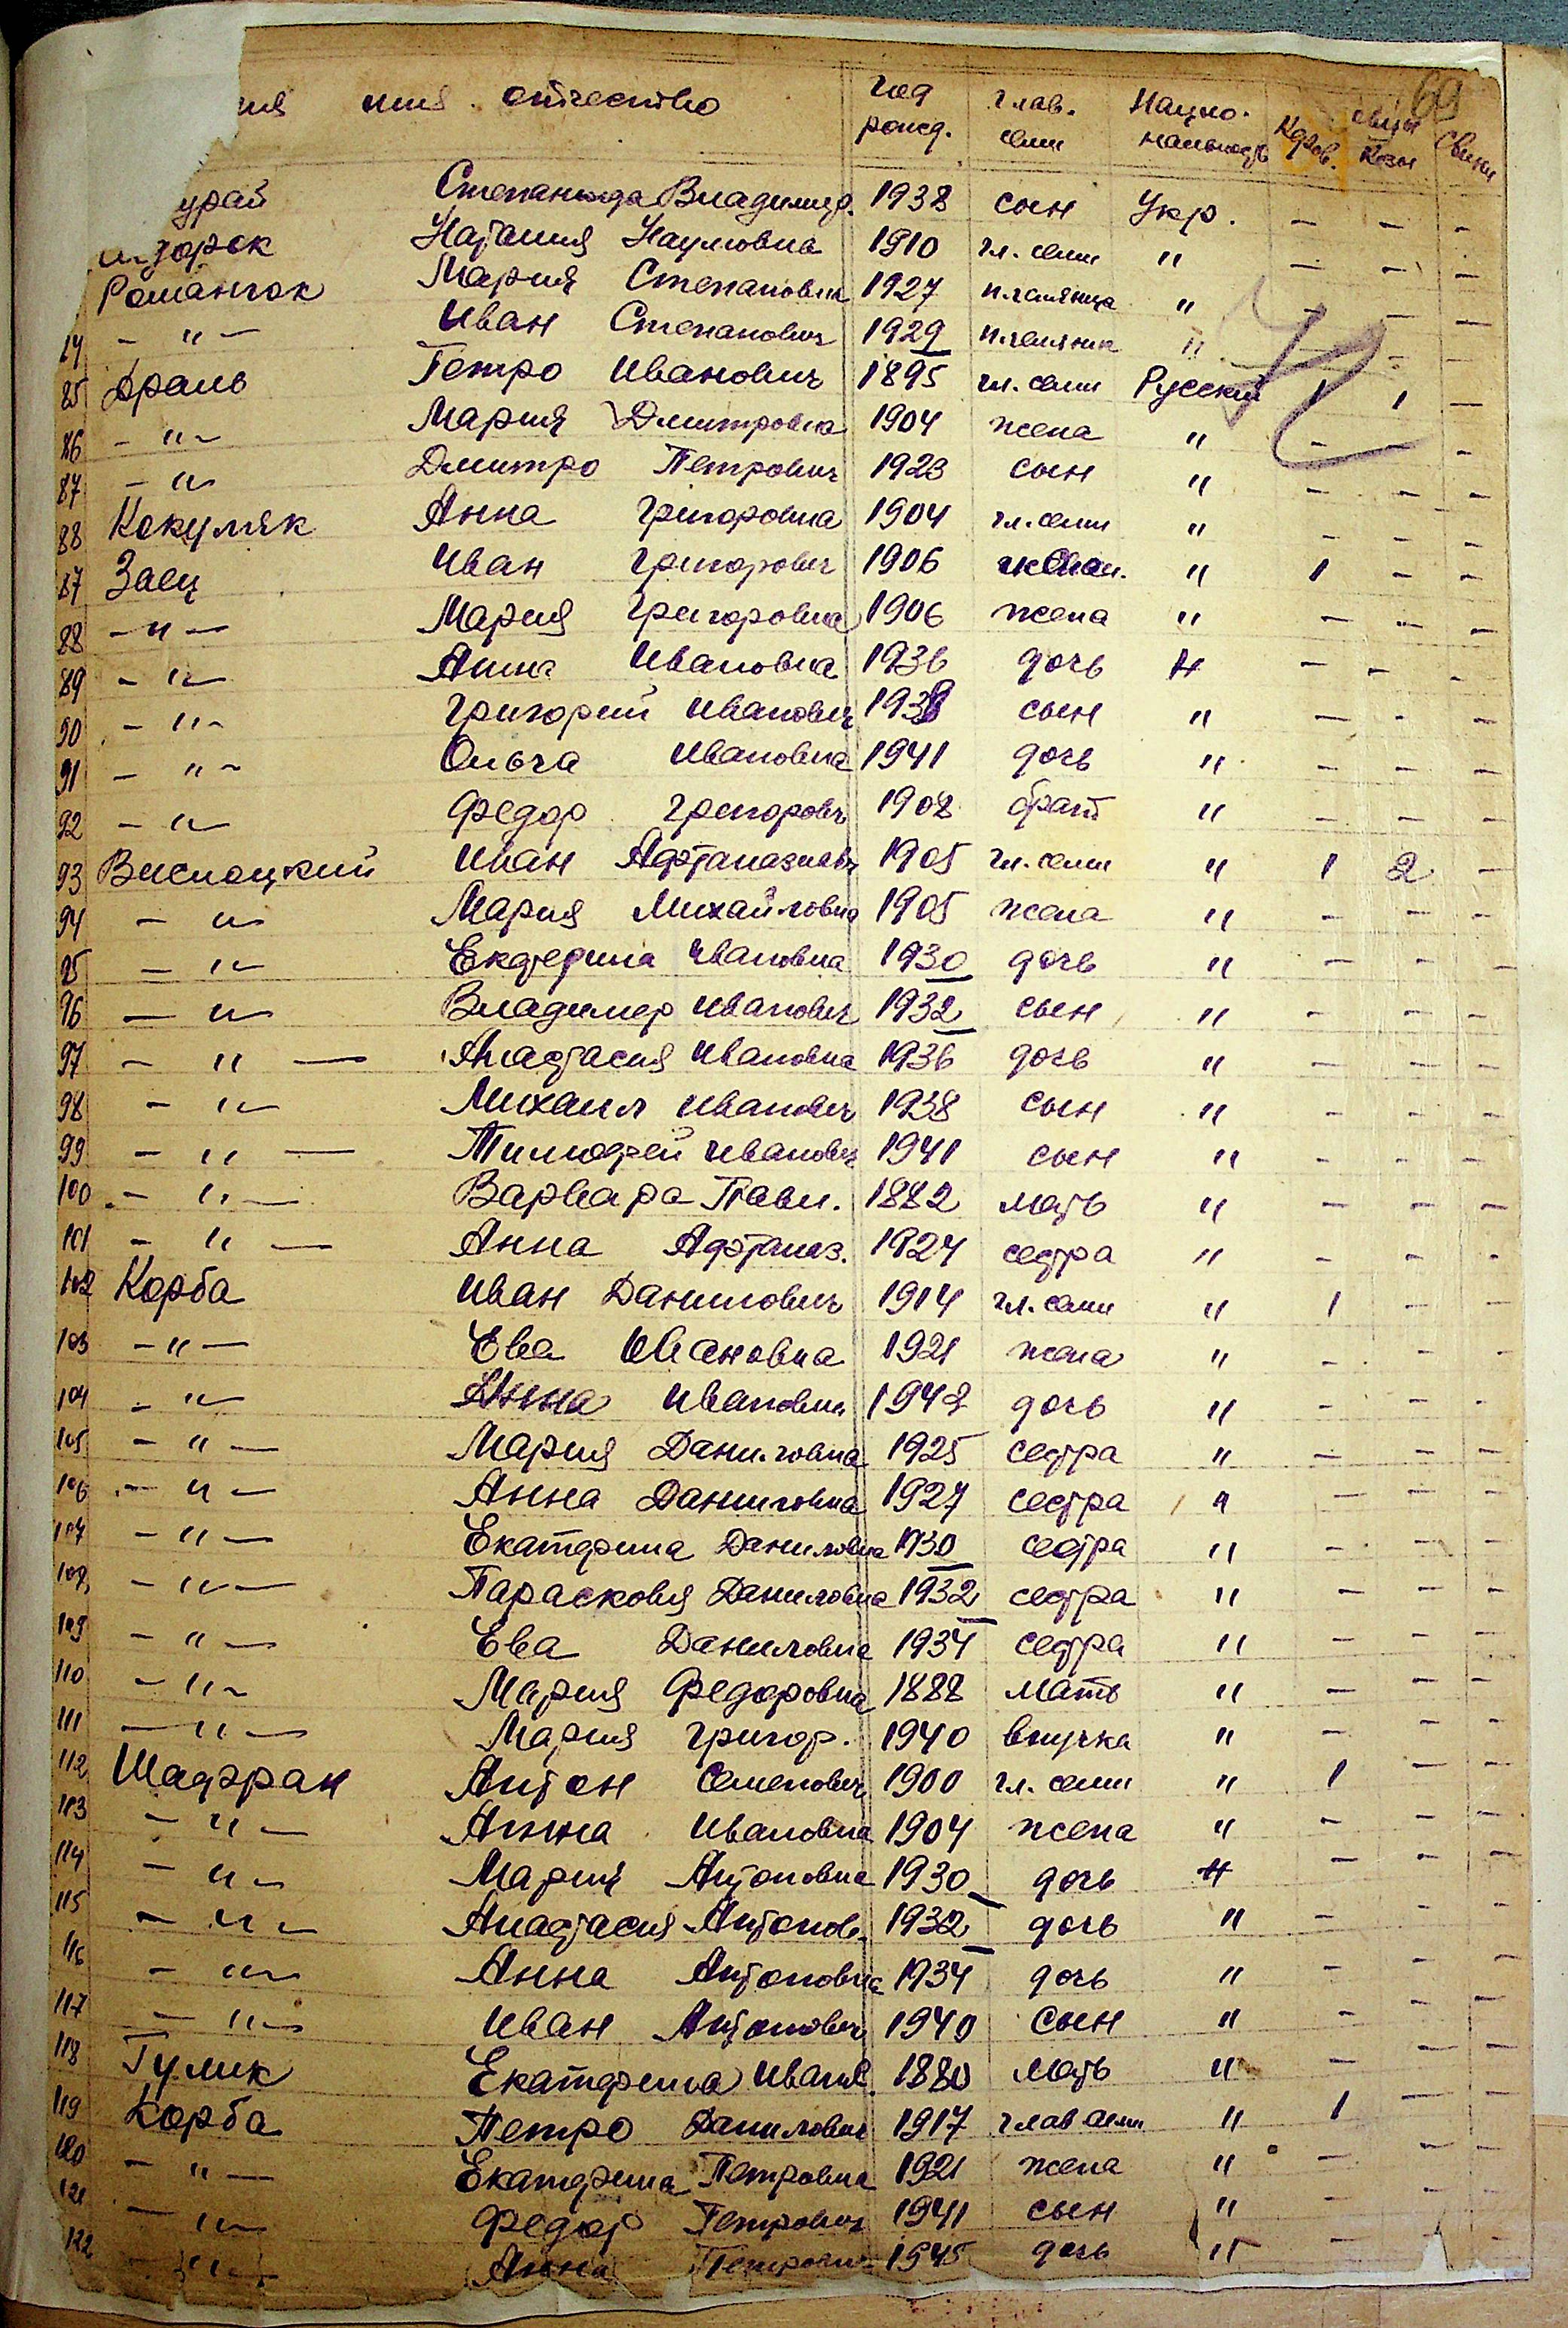 69
имя отчество год рожд. глав. семи Нацио- нальность Коров. овцы козы Свини
урай Владимир. 1938 сын Укр. - - -
Наталия Наумовна 1910 гл. семи " - - -
Романчак Мария Степановна 1927 " - - -
84 - " - Иван Степанович 1929 племяник " - - -
85 Драль Петро Иванович 1895 гл. семи Русский 1 1 -
86 - " - Мария Дмитровна 1904 жена " - - -
87 - " - Дмитро Петрович 1923 сын " - - -
88 Кокумяк Анна Григоровна 1904 гл. семи " - - -
87 Заец Иван Григорович 1906 " 1 - -
88 - " - Мария Григоровна 1906 жена " - - -
89 - " - Анна Ивановна 1936 дочь " - - -
90 - " - Григорий Иванович сын " - - -
91 - " - Ольга Ивановна 1941 дочь " - - -
92 - " - Федор Григорович 1908 брат " - - -
93 Висноцкий Иван 1905 гл. семи " 1 2 -
94 - " - Мария Михайловна 1905 жена " - - -
95 - " - Екатерина Ивановна 1930 дочь " - - -
96 - " - Владимер Иванович 1932 сын " - - -
97 - " - Анастасия Ивановна 1936 дочь " - - -
98 - " - Михаил Иванович 1938 сын " - - -
99 - " - Тимофей Иванович 1941 сын " - - -
100 - " - Варвара Павл. 1882 мать " - - -
101 - " - Анна Афтаназ. 1924 сестра " - - -
102 Корба Иван Данилович 1914 гл. семи " 1 - -
103 - " - Ева Ивановна 1921 жена " - - -
104 - " - Анна Ивановна дочь " - - -
105 - " - Мария Даниловна 1925 сестра " - - -
106 - " - Анна Даниловна 1927 сестра " - - -
107 - " - Екатерина Даниловна 1930 сестра " - - -
108 - " - Парасковия Даниловна 1932 сестра " - - -
109 - " - Ева Даниловна 1934 сестра " - - -
110 - " - Мария Федоровна 1888 мать " - - -
111 - " - Мария Григор. 1940 внучка " - - -
112 Шафран Антон Семенович 1900 гл. семи " 1 - -
113 - " - Анна Ивановна 1904 жена " - - -
114 - " - Мария Антоновна 1930 дочь " - - -
115 - " - Анастасия Антонов. 1932 дочь " - - -
116 - " - Анна Антоновна 1934 дочь " - - -
117 - " - Иван Антонович 1940 сын " - - -
118 Гулик Екатерина Иванов. 1880 мать " - - -
119 Корба Петро Данилович 1917 глав семи " 1 - -
120 - " - Екатерина Петровна 1921 жена " - - -
121 - " - Федор Петрович 1941 сын " - - -
122 - " - Анна Петровна 1945 дочь " - - -